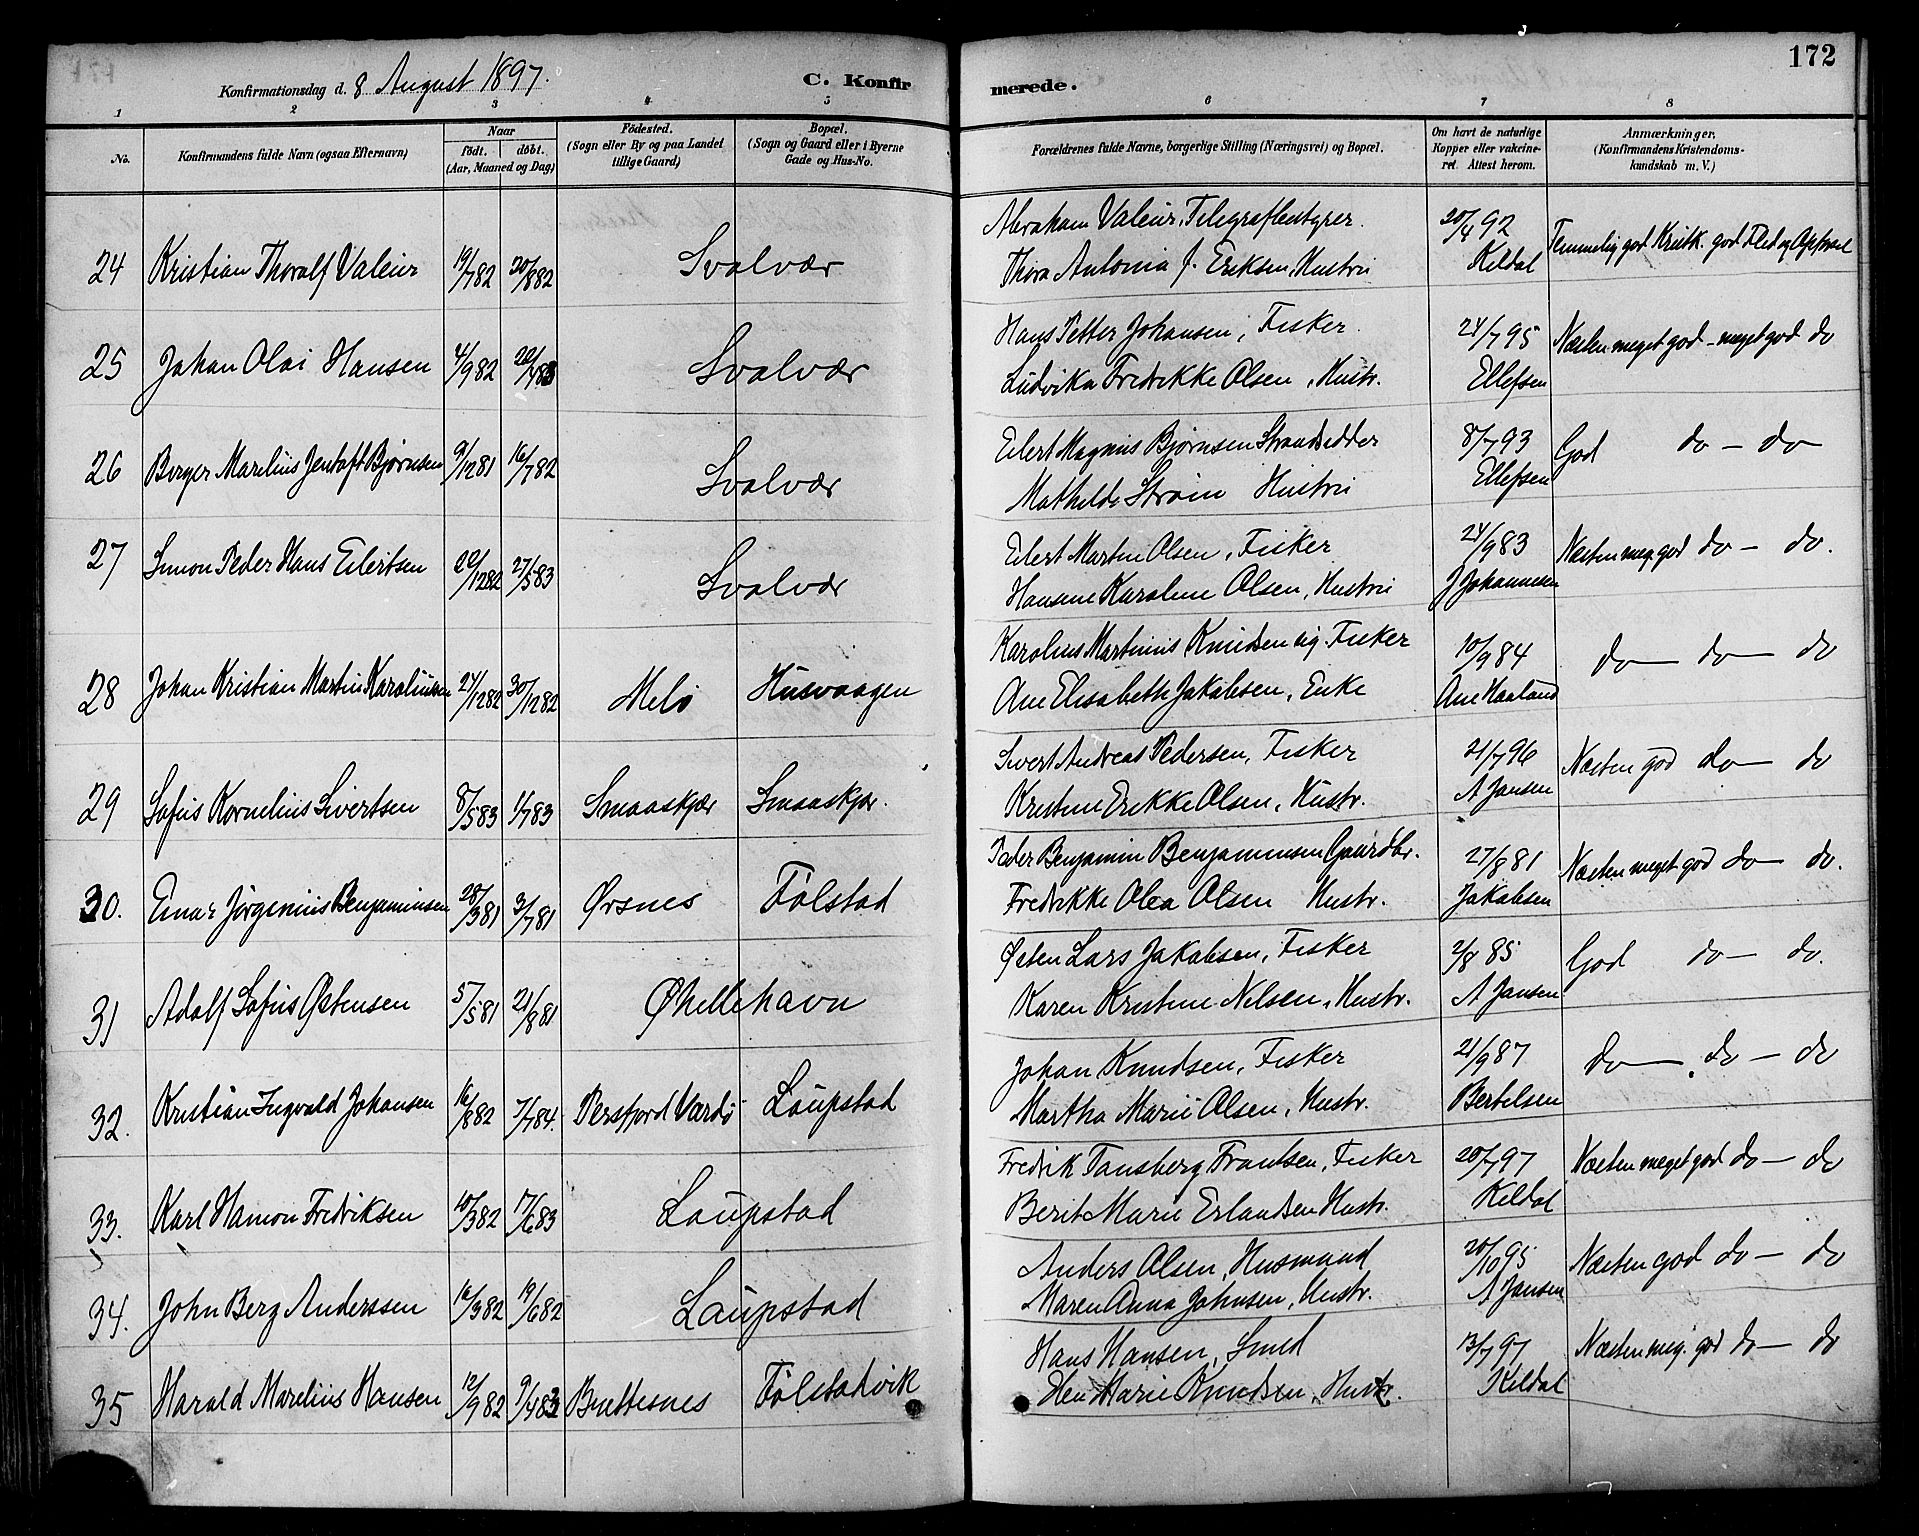 172
Konfirmationsdag d. 8 August 1897. C. Konfir merede.
1 2 3 4 5 6 7 8
No. Konfirmandens fulde Navn (ogsaa Efternavn) Naar født. døbt. (Aar, Maaned og Dag) Fødested. (Sogn eller By og paa Landet tillige Gaard) Bopæl. (Sogn og Gaard eller i Byerne Gade og Hus-No. Forældrenes fulde Navne, borgerlige Stilling (Næringsvei) og Bopæl. Om havt de naturlige Kopper eller vakcineret. Attest herom. Anmærkninger. (Konfirmandens Kristendomskundskab m. V.)
Abraham Valeur, Telegrafbestyrer. 20/4 92
24 Kristian Thoralf Valeur 19/7 82 20/8 82 Svolvær Thora Antonia f. Eriksen, Hustru Keldal Temmelig god Kristk. god Flid og Opførsel
Hans Petter Johansen, Fisker. 24/7 95
25 Johan Olai Hansen 4/9 82 22/4 83 Svolvær Ludvika Fredrikke Olsen, Hustr. Ellefsen Næsten meget god - meget god do
Eilert Magnus Bjørnsen Strandsidder 8/7 93
26 Berger Marelius Jentoft Bjørnsen 9/12 81 16/7 82 Svolvær Mathilde Strøm Hustru Ellefsen God do - do
Eilert Martin Olsen, Fisker 24/9 83
27 Simon Peder Hans Eilertsen 20/12 82 27/5 83 Svolvær Hansine Karoline Olsen, Hustru J Johannesen Næsten meg. god do - do.
Karolius Martinus Knudsen Fisker 10/9 84
28 Johan Kristian Martin Karoliussen 24/12 82 30/12 82 Melø Husvaagen Ane Elisabeth Jakobsen, Enke Ane Haaland do - do - do
Sivert Andreas Pedersen, Fisker 21/7 96
29 Sofus Kornelius Sivertsen 8/5 83 1/7 83 Smaaskjær Smaaskjær. Kristine Erikke Olsen, Hustr. A Jansen Næsten god do - do
Peder Benjamin Benjaminsen Gaardbr. 27/8 81
30. Einar Jørginius Benjaminsen 28/3 81 3/7 81 Ørsnes Følstad Fredrikke Olea Olsen Hustr. Jakobsen Næsten meget god do - do.
Østen Lars Jakobsen, Fisker 2/8 85
31 Adolf Sofus Østensen 5/5 81 21/8 81 Øhellehavn Karen Kristine Nilsen, Hustr. A Jansen God do - do.
Johan Knudsen, Fisker 21/9 87
32. Kristian Ingvald Johansen 16/8 82 7/7 84. Persfjord Vardø Laupstad Martha Marie Olsen, Hustr. Bertelsen do - do - do
Fredrik Tansberg Frantsen, Fisker 20/7 97
33. Karl Hamon Fredriksen 10/3 82 17/6 83 Laupstad Berit Marie Erlandsen Hustr. Keldal Næsten meget god do - do
Anders Olsen, Husmand 20/10 95
34. John Berg Anderssen 16/3 82 19/6 82 Laupstad Maren Anna Johnsen, Hustr. A Jansen Næsten god do - do
Hans Hansen, Smed 13/7 97
35 Harald Marelius Hansen 12/9 82 9/4 83 Brettesnes Følstadvik Marie Knudsen, Hustr. Keldal Næsten meg. god do - do